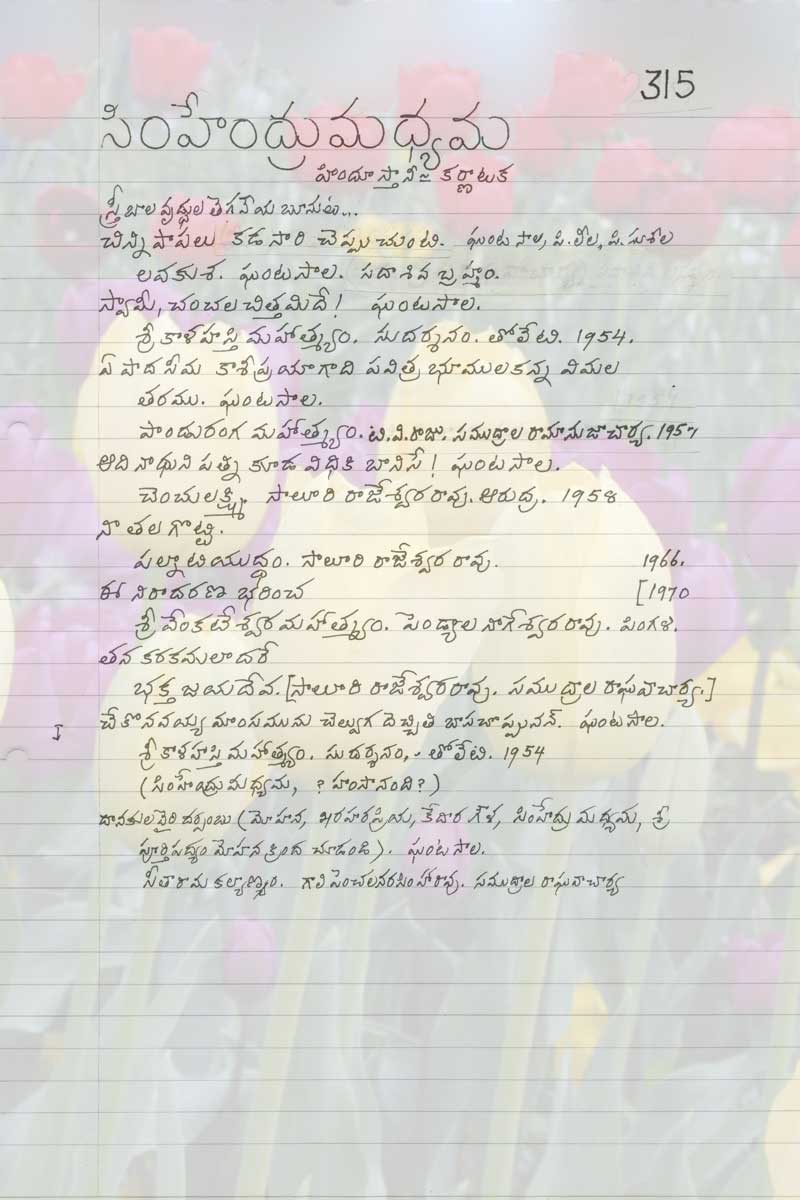 315
సింహేంద్రుమధ్యమ
హిందూస్తానీ = కర్ణాటక
స్త్రీ బాల వృద్ధుల తెగవేయ బూనుట...
చిన్ని పాపలు కడసారి చెప్పుచుంటి. ఘంటసాల, పి.లీల, పి.సుశీల
లవకుశ. ఘంటసాల. సదాశివ బ్రహ్మం.
స్వామీ, చంచల చిత్తమిదే! ఘంటసాల.
శ్రీ కాళహస్తి మహాత్మ్యం. సుదర్శనం. తోలేటి. 1954.
ఏ పాద సీమ కాశీప్రయాగాది పవిత్ర భూములకన్న విమల
తరము. ఘంటసాల.
పాండురంగ మహాత్మ్యం. టి.వి.రాజు. సముద్రాల రామానుజాచార్య. 1957
ఆది నాథుని పత్ని కూడ విధికి బానిసే! ఘంటసాల.
చెంచులక్ష్మి. సాలూరి రాజేశ్వరరావు. ఆరుద్ర. 1958
నా తల గొట్టి.
పల్నాటియుద్ధం. సాలూరి రాజేశ్వర రావు. 1966.
ఈ నిరాదరణ భరించ [1970
శ్రీ వేంకటేశ్వర మహాత్మ్యం. పెండ్యాల నాగేశ్వరరావు. పింగళి.
తన కరకమలాదరే
భక్త జయదేవ. [సాలూరి రాజేశ్వరరావు. సముద్రాల రాఘవాచార్య.]
చేకొనవయ్య మాంసమును చెల్వుగ దెచ్చితి బాస దప్పువన్. ఘంటసాల.
శ్రీ కాళహస్తి మహాత్మ్యం. సుదర్శనం, తోలేటి. 1954
(సింహేంద్రుమధ్యమ, ? హంసానంది?)
దానకుల వైరి దర్పంబు (మోహన, ఖరహరప్రియ, కేదార గౌళ, సింహేంద్రు మధ్యమ, శ్రీ
పూర్తిపద్యం మోహన క్రింద చూడండి). ఘంటసాల.
సీతారామ కల్యాణం. గాలి పెంచలనరసింహారావు. సముద్రాల రాఘవాచార్య